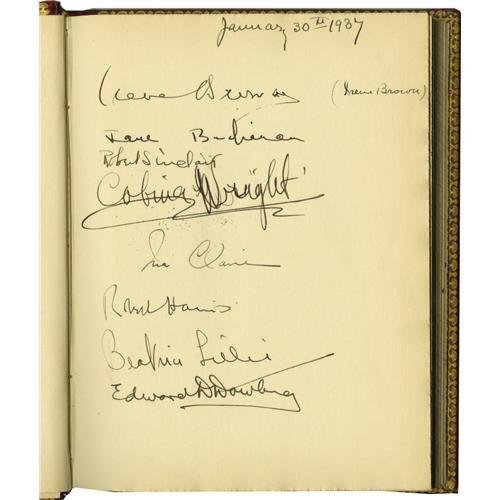 January 30TH 1937
Irene Browne (Irene Brown)
Jane Buchanan
Robert Sinclair
Cobina Wright
Ina Claire
Robert Harris
Beatrice Lillie
Edward D Dowling